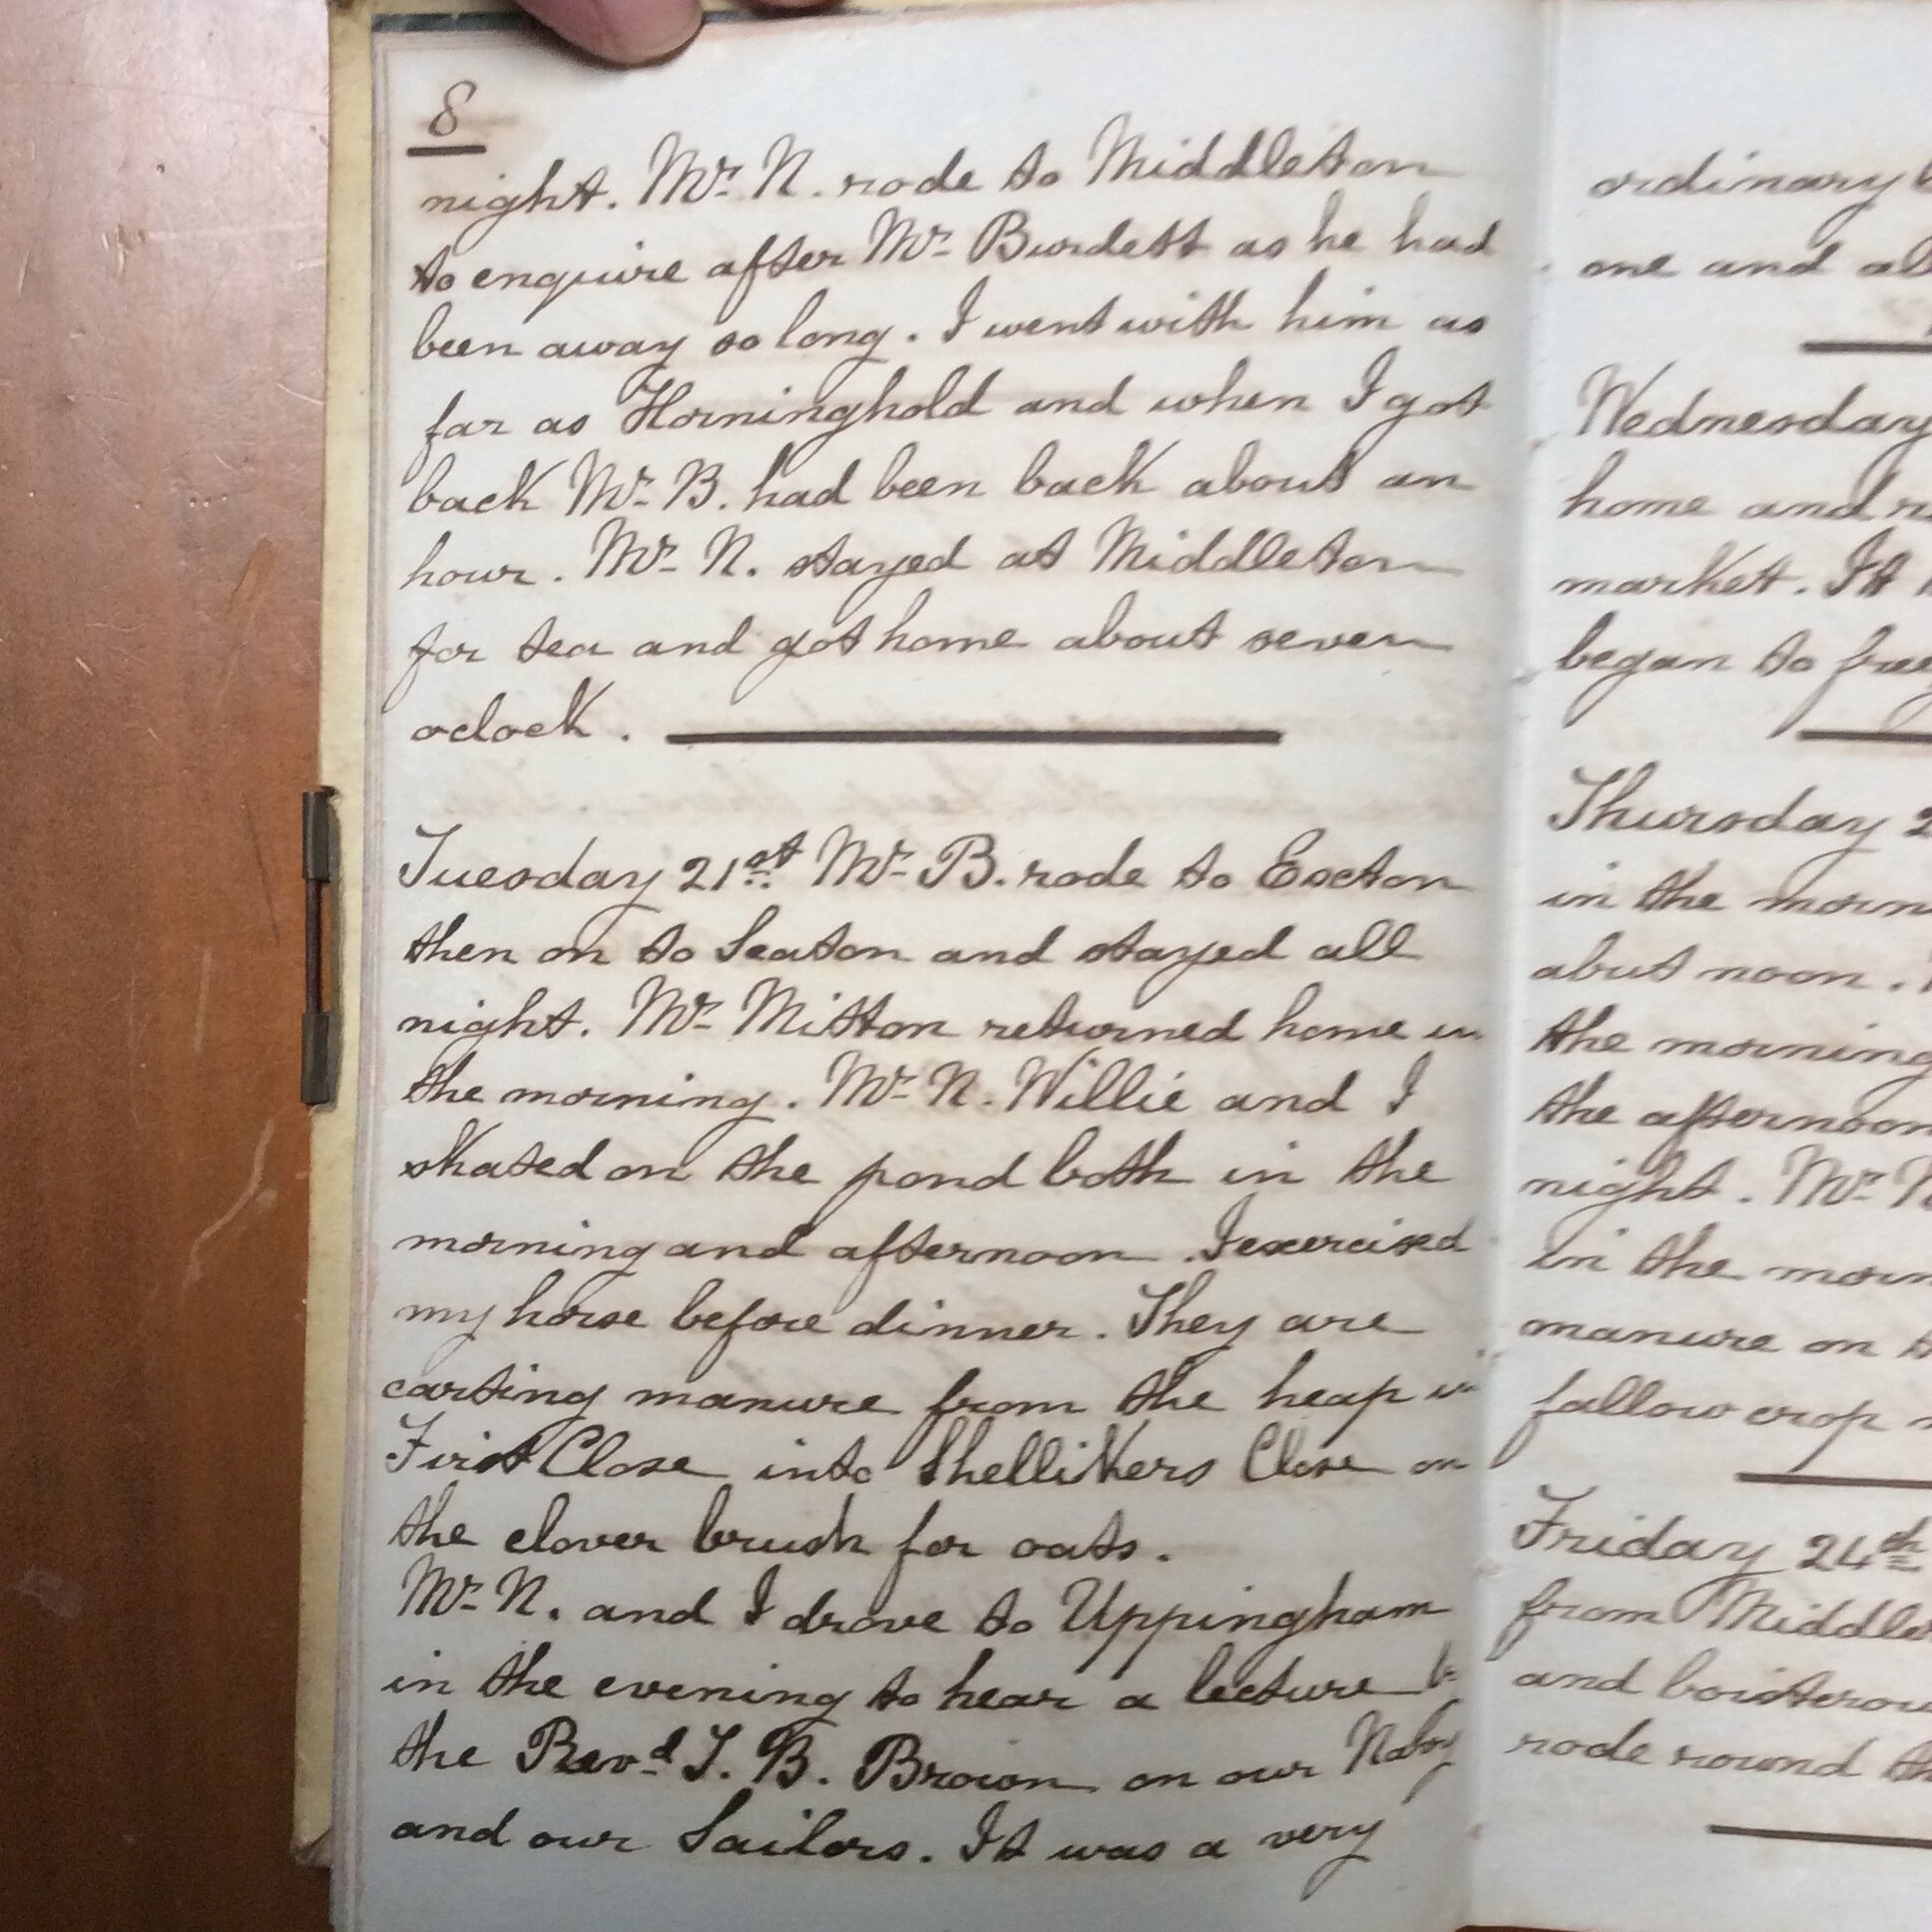 8
night. Mr. N. rode to Middleton
to enquire after Mr. Burdett as he had
been away so long. I went with him as
far as Horninghold and when I got
back Mr. B. had been back about an
hour. Mr. N. stayed at Middleton
for tea and got home about seven
oclock.
Tuesday 21st Mr. B. rode to Exton
then on to Seaton and stayed all
night. Mr. Mitton returned home in
the morning. Mr. N. Willie and I
skated on the pond both in the
morning and afternoon. I exercised
my horse before dinner. They are
carting manure from the heap in
First Close into Shellikers Close on
the clover brush for oats.
Mr. N. and I drove to Uppingham
in the evening to hear a lecture
the Revd J. B. Brown on our Navy
and our Sailors. It was a very
ordinary
one and
Wednesday
home and
market. It
began to
Thursday
in the
abut noon.
the morning
the afternoon
night. Mr.
in the
manure on
fallow crop
Friday 24th
from
and
rode round